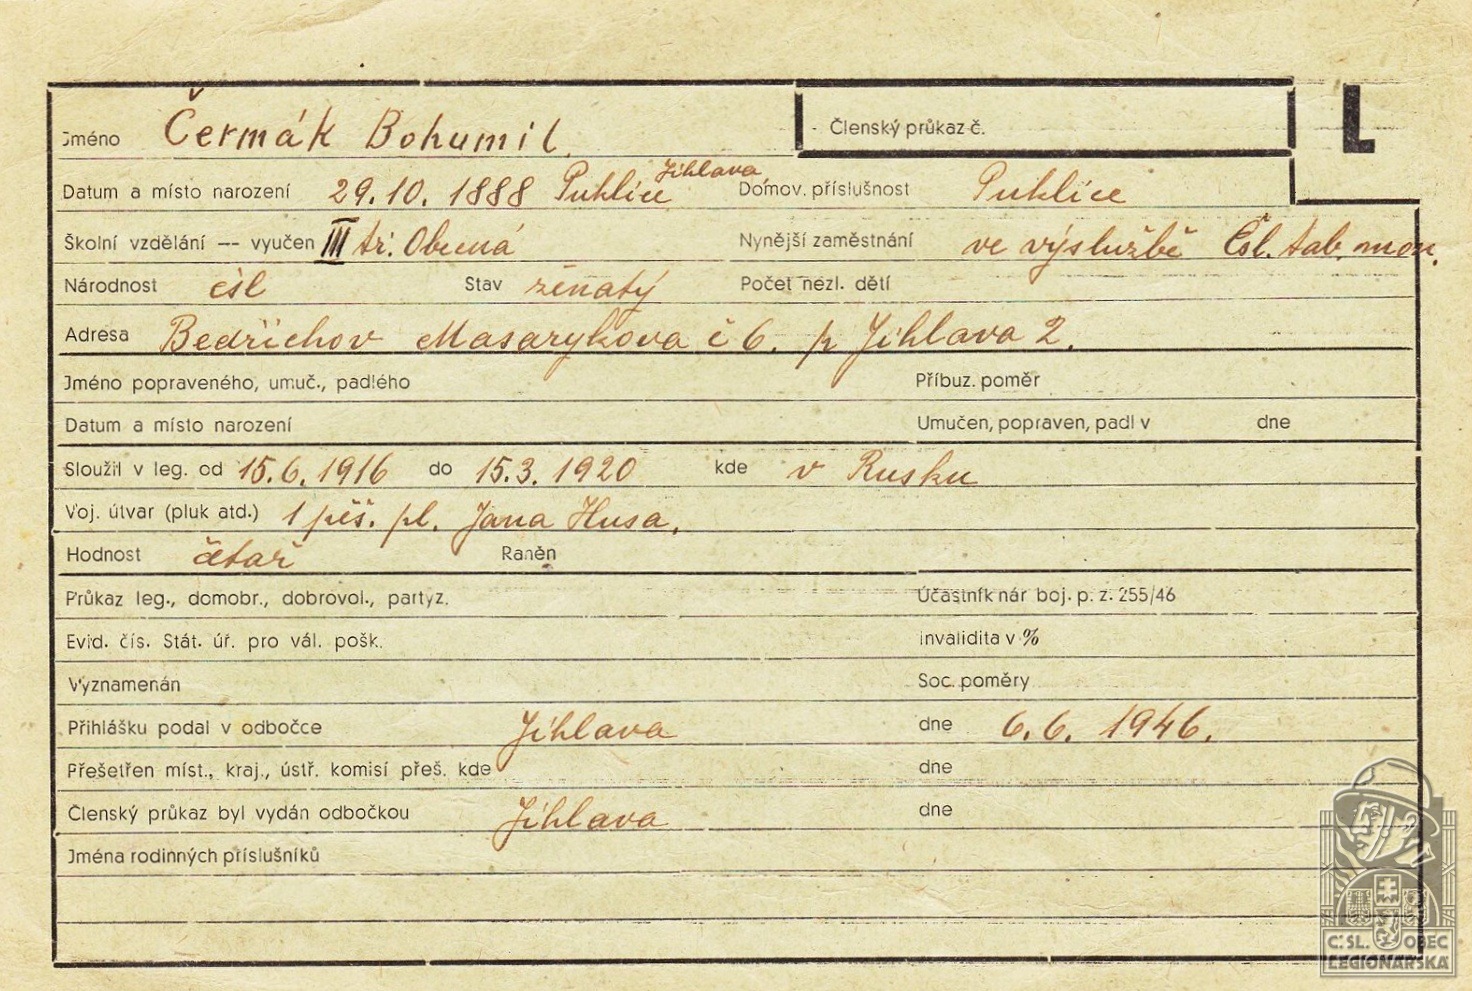 Jméno Čermák Bohumil. Členský průkaz č. L
Datum a místo narození 29.10. 1888 Puklice Jihlava Domov. příslušnost Puklice
Školní vzdělání — vyučen III tř. Obecná Nynější zaměstnání ve výslužbě Čsl. tab. mon.
Národnost čsl Stav ženatý Počet nezl. dětí
Adresa Bedřichov Masarykova č 6. p Jihlava 2.
Jméno popraveného, umuč., padlého Příbuz. poměr
Datum a místo narození Umučen, popraven, padl v dne
Sloužil v leg. od 15.6.1916 do 15.3.1920 kde v Rusku
Voj. útvar (pluk atd.) 1 pěš. pl. Jana Husa.
Hodnost četař Raněn
Průkaz leg., domobr., dobrovol., partyz. Účastník nár boj. p. z. 255/46
Evid. čís. Stát. úř. pro vál. pošk. invalidita v %
Vyznamenán Soc. poměry
Přihlášku podal v odbočce Jihlava dne 6.6. 1946.
Přešetřen míst., kraj., ústř. komisí přeš. kde dne
Členský průkaz byl vydán odbočkou Jihlava dne
Jména rodinných příslušníků
ČSL. OBEC
LEGIONÁŘSKÁ